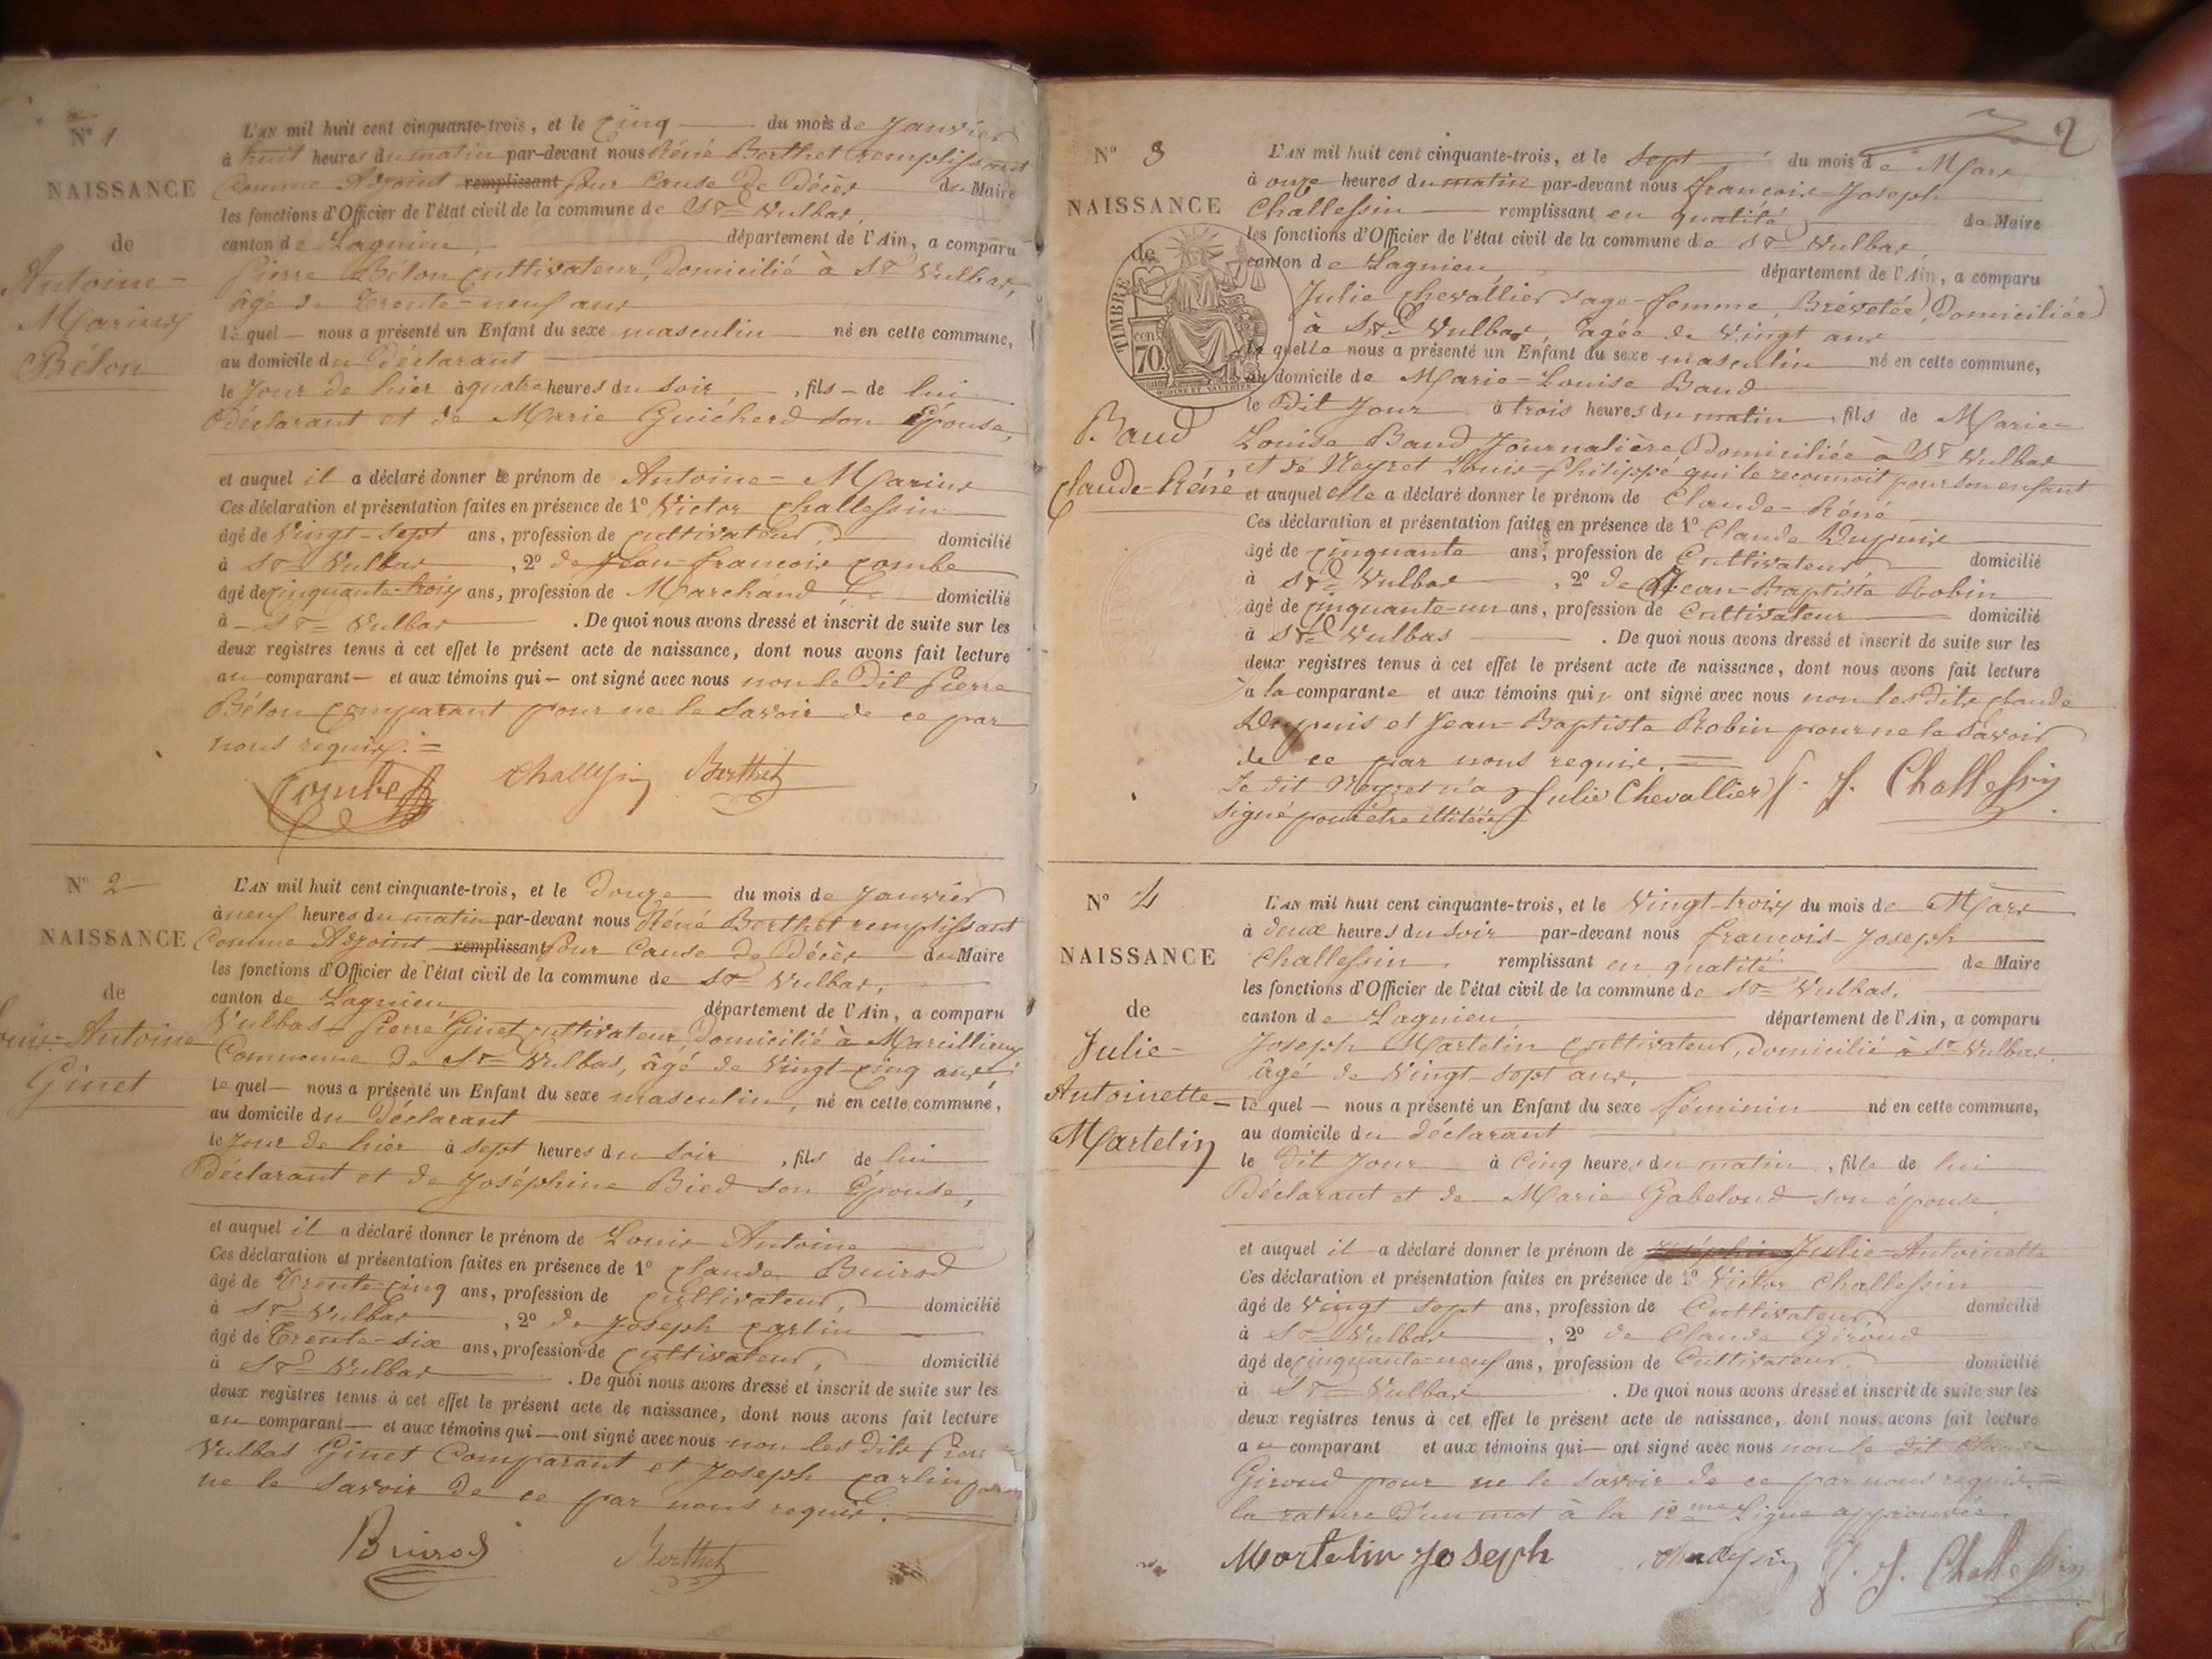 N° 1
NAISSANCE
de
Antoine-
Marius
Béton
L'AN mil huit cent cinquante-trois, et le cinq du mois de Janvier
à huit heures du matin par-devant nous Réné Berthet remplissant
Comme Adjoint remplissant pour Cause de Décès du Maire
les fonctions d'Officier de l'état civil de la commune de St Vulbas,
canton de Lagnieu, département de l'Ain, a comparu
Pierre Béton Cultivateur, Domicilié à St Vulbas,
âgé de Trente-neuf ans
lequel nous a présenté un Enfant du sexe masculin né en cette commune,
au domicile du Déclarant
le Jour de hier à quatre heures du soir, fils de lui
Déclarant et de Marie Guicherd son Épouse,
et auquel il a déclaré donner le prénom de Antoine-Marius
Ces déclaration et présentation faites en présence de 1° Victor Challessin
âgé de Vingt-sept ans, profession de cultivateur, domicilié
à St Vulbas, 2° de Jean-françois Combe
âgé de cinquante-trois ans, profession de Marchand domicilié
à St Vulbas. De quoi nous avons dressé et inscrit de suite sur les
deux registres tenus à cet effet le présent acte de naissance, dont nous avons fait lecture
au comparant et aux témoins qui ont signé avec nous non le Dit Pierre
Béton Comparant pour ne le Savoir de ce par
nous requis.=
Combe Challessin Berthet
N° 2
NAISSANCE
de
Louis-Antoine
Ginet
L'AN mil huit cent cinquante-trois, et le Douze du mois de Janvier
à neuf heures du matin par-devant nous Réné Berthet remplissant
Comme Adjoint remplissant pour Cause de Décès du Maire
les fonctions d'Officier de l'état civil de la commune de St Vulbas,
canton de Lagnieu, département de l'Ain, a comparu
Vulbas-Pierre Ginet cultivateur Domicilié à Marcillieux
Commune de St Vulbas, âgé de Vingt-cinq ans,
lequel nous a présenté un Enfant du sexe masculin, né en cette commune,
au domicile du Déclarant
le Jour de hier à sept heures du soir, fils de lui
Déclarant et de Joséphine Bied son Épouse,
et auquel il a déclaré donner le prénom de Louis Antoine
Ces déclaration et présentation faites en présence de 1° Claude Buirod
âgé de Trente-cinq ans, profession de Cultivateur, domicilié
à St Vulbas, 2° de Joseph Carlin
âgé de Trente-six ans, profession de cultivateur, domicilié
à St Vulbas. De quoi nous avons dressé et inscrit de suite sur les
deux registres tenus à cet effet le présent acte de naissance, dont nous avons fait lecture
au comparant et aux témoins qui ont signé avec nous non les dits Pierre
Vulbas Ginet Comparant et Joseph Carlin pour
ne le Savoir de ce par nous requis.
Buirod Berthet
2
N° 3
NAISSANCE
de
TIMBRE
70
Baud
Claude-Réné
L'AN mil huit cent cinquante-trois, et le sept du mois de Mars
à onze heures du matin par-devant nous françois-Joseph
Challessin remplissant en qualité de Maire
les fonctions d'Officier de l'état civil de la commune de St Vulbas,
canton de Lagnieu, département de l'Ain, a comparu
Julie Chevallier sage-femme, Brévetée, Domiciliée
à St Vulbas, âgée de Vingt ans
laquelle nous a présenté un Enfant du sexe masculin né en cette commune,
au domicile de Marie-Louise Baud
le Dit Jour à trois heures du matin, fils de Marie-
Louise Baud Journalière Domiciliée à St Vulbas
et de Neyret Louis-Philippe qui le reconnoit pour son enfant
et auquel elle a déclaré donner le prénom de Claude-Réné
Ces déclaration et présentation faites en présence de 1° Claude Dupuis
âgé de cinquante ans, profession de Cultivateur domicilié
à St Vulbas, 2° de Jean-Baptiste Robin
âgé de cinquante-un ans, profession de Cultivateur domicilié
à St Vulbas. De quoi nous avons dressé et inscrit de suite sur les
deux registres tenus à cet effet le présent acte de naissance, dont nous avons fait lecture
a la comparante et aux témoins qui ont signé avec nous non les dits Claude
Dupuis et Jean-Baptiste Robin pour ne le Savoir
de ce par nous requis.=
Le dit Neyret n'a Julie Chevallier f. J. Challessin
signé pour être illitéré
N° 4
NAISSANCE
de
Julie-
Antoinette-
Martelin
L'AN mil huit cent cinquante-trois, et le Vingt-trois du mois de Mars
à deux heures du soir par-devant nous françois-Joseph
Challessin, remplissant en qualité de Maire
les fonctions d'Officier de l'état civil de la commune de St Vulbas,
canton de Lagnieu, département de l'Ain, a comparu
Joseph Martelin Cultivateur, domicilié à St Vulbas,
âgé de Vingt-sept ans,
lequel nous a présenté un Enfant du sexe féminin né en cette commune,
au domicile du déclarant
le Dit Jour à Cinq heures du matin, fille de lui
Déclarant et de Marie Gabeloud son épouse,
et auquel il a déclaré donner le prénom de Joséphine Julie-Antoinette
Ces déclaration et présentation faites en présence de 1° Victor Challessin
âgé de Vingt sept ans, profession de Cultivateur domicilié
à St Vulbas, 2° de Claude Giroud
âgé de cinquante-neuf ans, profession de Cultivateur domicilié
à St Vulbas. De quoi nous avons dressé et inscrit de suite sur les
deux registres tenus à cet effet le présent acte de naissance, dont nous avons fait lecture
au comparant et aux témoins qui ont signé avec nous non le dit Claude
Giroud pour ne le savoir de ce par nous requis.=
la rature d'un mot à la 12me Ligne approuvée.
Martelin Joseph Challessin f. J. Challessin